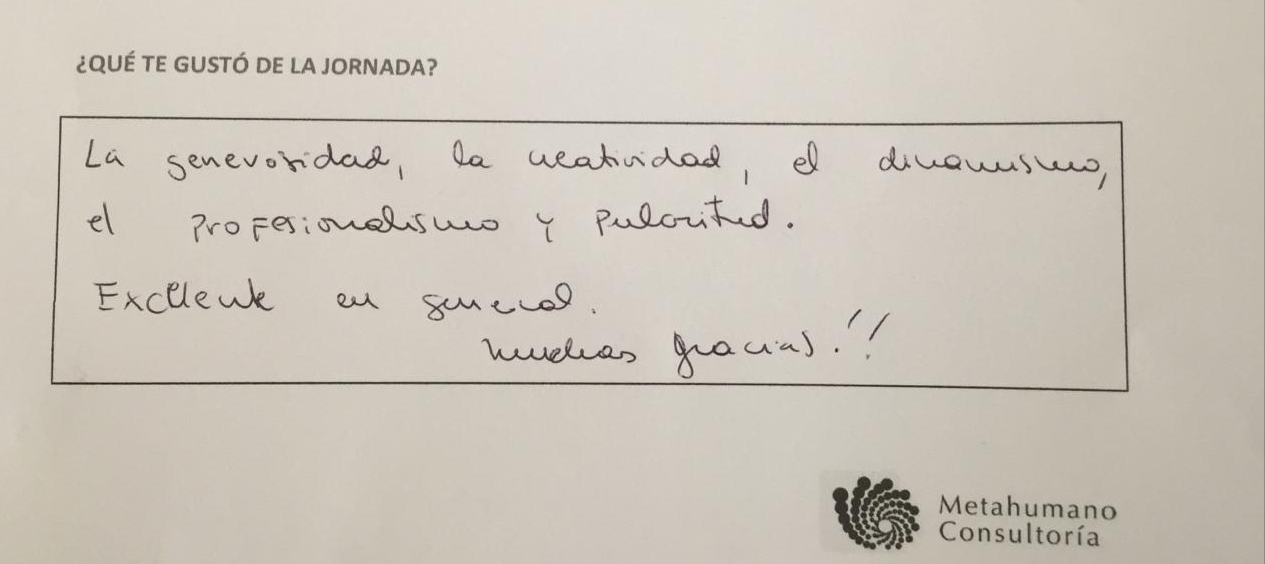 ¿QUÉ TE GUSTÓ DE LA JORNADA?
La generosidad, la creatividad, el dinamismo,
el profesionalismo y pulcritud.
Excelente en general.
muchas gracias!!
Metahumano
Consultoría